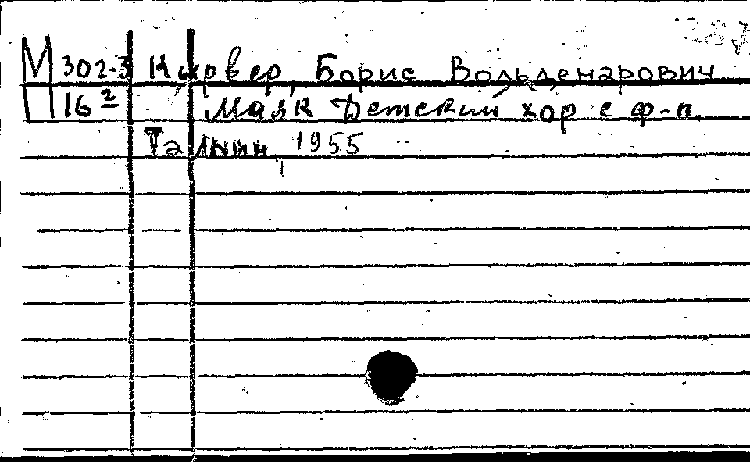 М 302-3 Кырвер, Борис Вольдемарович
П 16² Маяк Детский хор с ф-п.
Таллин, 1955